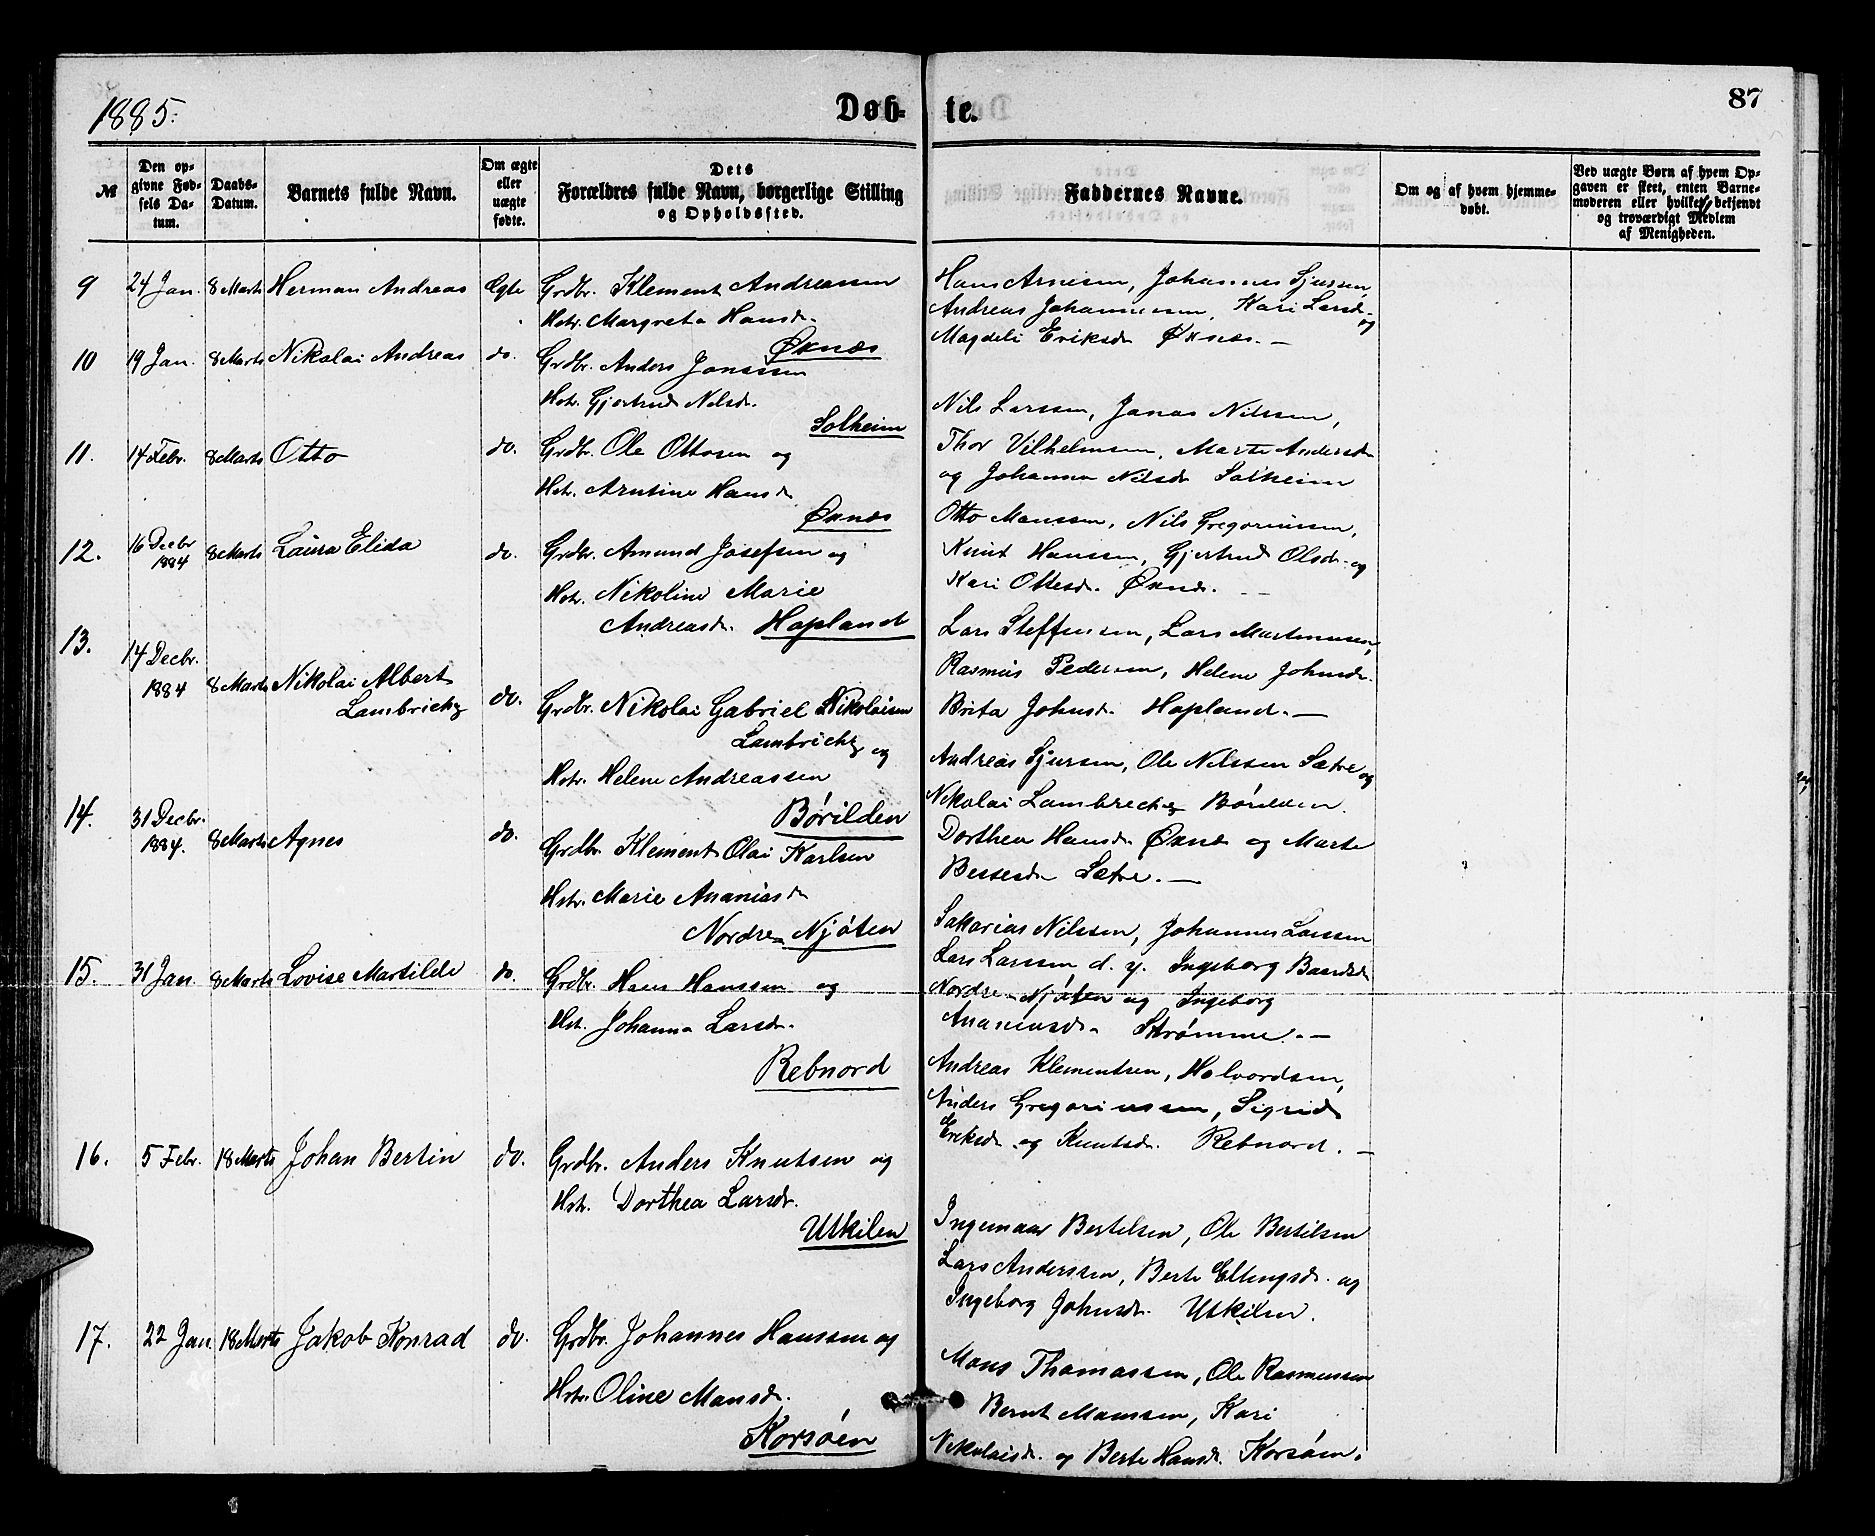 1885.
Døb-
te.
87
№
Den op-
givne Fød-
sels Da-
tum.
Daabs-
Datum.
Barnets fulde Navn.
Om ægte
eller
uægte
fødte.
Dets
Forældres fulde Navn, borgerlige Stilling
og Opholdssted.
Faddernes Navne.
Om og af hvem hjemme-
døbt.
Ved uægte Børn af hvem Op-
gaven er skeet, enten Barne-
moderen eller hvilket bekjendt
og troværdigt Medlem
af Menigheden.
9 24 Jan. 8 Marts Herman Andreas Ægte Grdbr. Klement Andreassen
Hstr. Margreta Hansdr.
Øknæs
Hans Arnesen, Johannes Sjursen,
Andreas Johannessen, Kari Larsdr. og
Magdeli Eriksdr Øknæs. —
10 19 Jan. 8 Marts Nikolai Andreas do. Grdbr. Anders Jonssen
Hstr. Gjertrud Nilsdr.
Solheim
Nils Larssen, Jonas Nilssen,
Thor Vilhelmsen, Marte Andersdr
og Johanna Nilsdr Solheim
11. 14 Febr. 8 Marts Otto do. Grdbr. Ole Ottosen og
Hstr. Arntine Hansdr
Øknæs
Otto Monssen, Nils Gregoriussen,
Knut Hanssen, Gjertrud Olsdr. og
Kari Ottesdr. Øknæs. —
12. 16 Decbr 1884 8 Marts Laura Elida do. Grdbr. Amund Josefsen og
Hstr. Nikoline Marie
Andreasdr. Hopland
Lars Steffensen, Lars Martinussen,
Rasmus Pedersen, Helene Johnsdr.
Brita Johnsdr Hopland. —
13. 14 Decbr. 1884 8 Marts Nikolai Albert
Lambrichz do. Grdbr. Nikolai Gabriel Nikolaisen
Lambrichz og
Hstr. Helene Andreassen
Børilden
Andreas Sjursen, Ole Nilssen Sætre og
Nikolai Lambrechz Børilden.
Dorthea Hansdr. Øknæs og Marte
Bessesdr Sætre. —
14. 31 Decbr. 1884. 8 Marts Agnes do. Grdbr. Klement Olai Karlsen
Hstr. Marie Ananiasdr
Nordre Njøten
Sakarias Nilssen, Johannes Larssen
Lars Larssen d. y. Ingeborg Baardsdr
Nordre Njøten og Ingeborg
Ananiasdr. Strømme. —
15. 31 Jan. 8 Marts Lovise Martilde do. Grdbr. Hans Hanssen og
Hst. Johanna Larsdr.
Rebnord
Andreas Klementsen, Halvordsen,
Anders Gregoriussen, Sigrid
Eriksdr og Knutsdr. Rebnord. —
16. 5 Febr. 18 Marts Johan Bertin do. Grdbr. Anders Knutsen og
Hstr. Dorthea Larsdr.
Utkilen
Ingemaar Bertelsen, Ole Bertilsen
Lars Anderssen, Berte Ellingsdr. og
Ingeborg Johnsdr. Utkilen.
17. 22 Jan. 18 Marts Jakob Konrad do. Grdbr. Johannes Hanssen og
Hstr. Oline Monsdr.
Korsøen
Mons Thomassen, Ole Rasmussen
Bernt Monssen, Kari
Nikolaisdr. og Berte Hansdr. Korsøen.